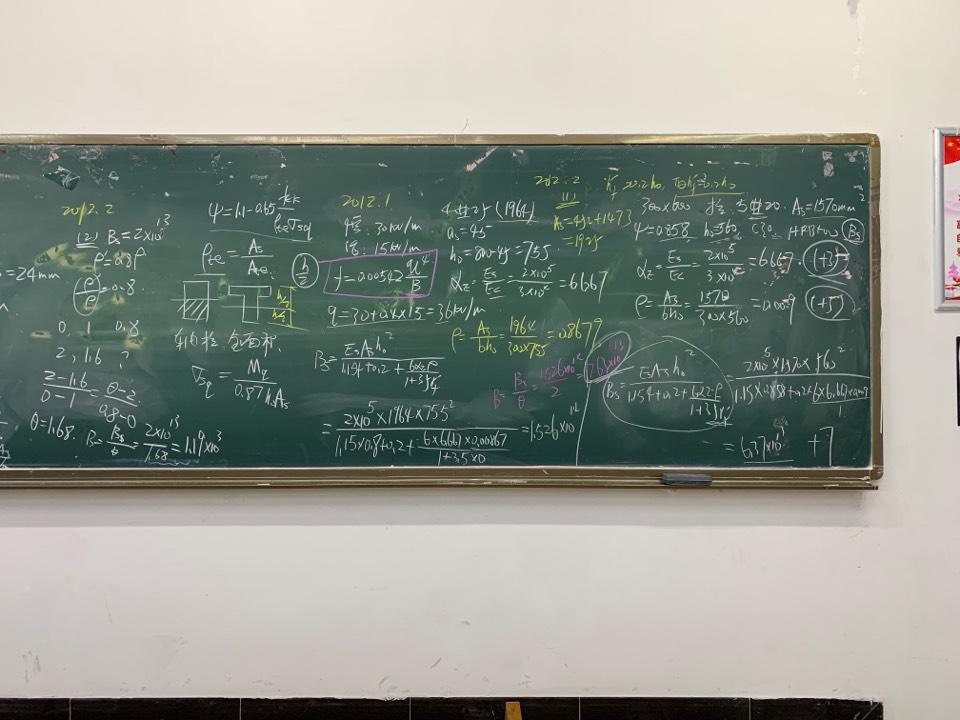 2012.2
(2) Bs=2×10^13
ρ'=0.8ρ
ρ'/ρ=0.8
=24mm
0, 1 0.8
2, 1.6 ?
(2-1.6)/(0-1)=(θ-2)/(0.8-0)
θ=1.68. B=Bs/θ=2×10^13/1.68=1.19×10^13
ψ=1.1-0.65 ftk/(ρteσsq)
ρte=As/Ate
h/2
h/2
h/2
σsq=Mq/(0.87h₀As)
2012.1
恒:30kN/m
活:15kN/m
f=0.00542 ql^4/B
q=30+0.4×15=36kN/m
Bs=EsAsh₀²/(1.15ψ+0.2+6αEρ/(1+3.5γf'))
=2×10^5×1964×755²/(1.15×0.8+0.2+6×6.667×0.00867/(1+3.5×0))=1.526×10^14
4⌀25(1964)
as=45
h₀=800-45=755
αE=Es/Ec=2×10^5/3×10^4=6.667
ρ=As/bh₀=1964/300×755=0.867%
B=Bs/θ=1.526×10^14/2=7.63×10^13
2012.2
(1)
As=452+1473
=1925
hf'≥0.2h₀, 取hf'=0.2h₀
300×600 5⌀20. As=1570mm²
ψ=0.858 h₀=560 C30. HRB400 (Bs)
αE=Es/Ec=2×10^5/3×10^4=6.667. (+3)
ρ=As/bh₀=1570/300×560=0.009 (+5)
Bs=EsAsh₀²/(1.15ψ+0.2+6αEρ/(1+3.5γf'))=2×10^5×1570×560²/(1.15×0.858+0.2+6×6.667×0.009/1)
=6.37×10^13 +7